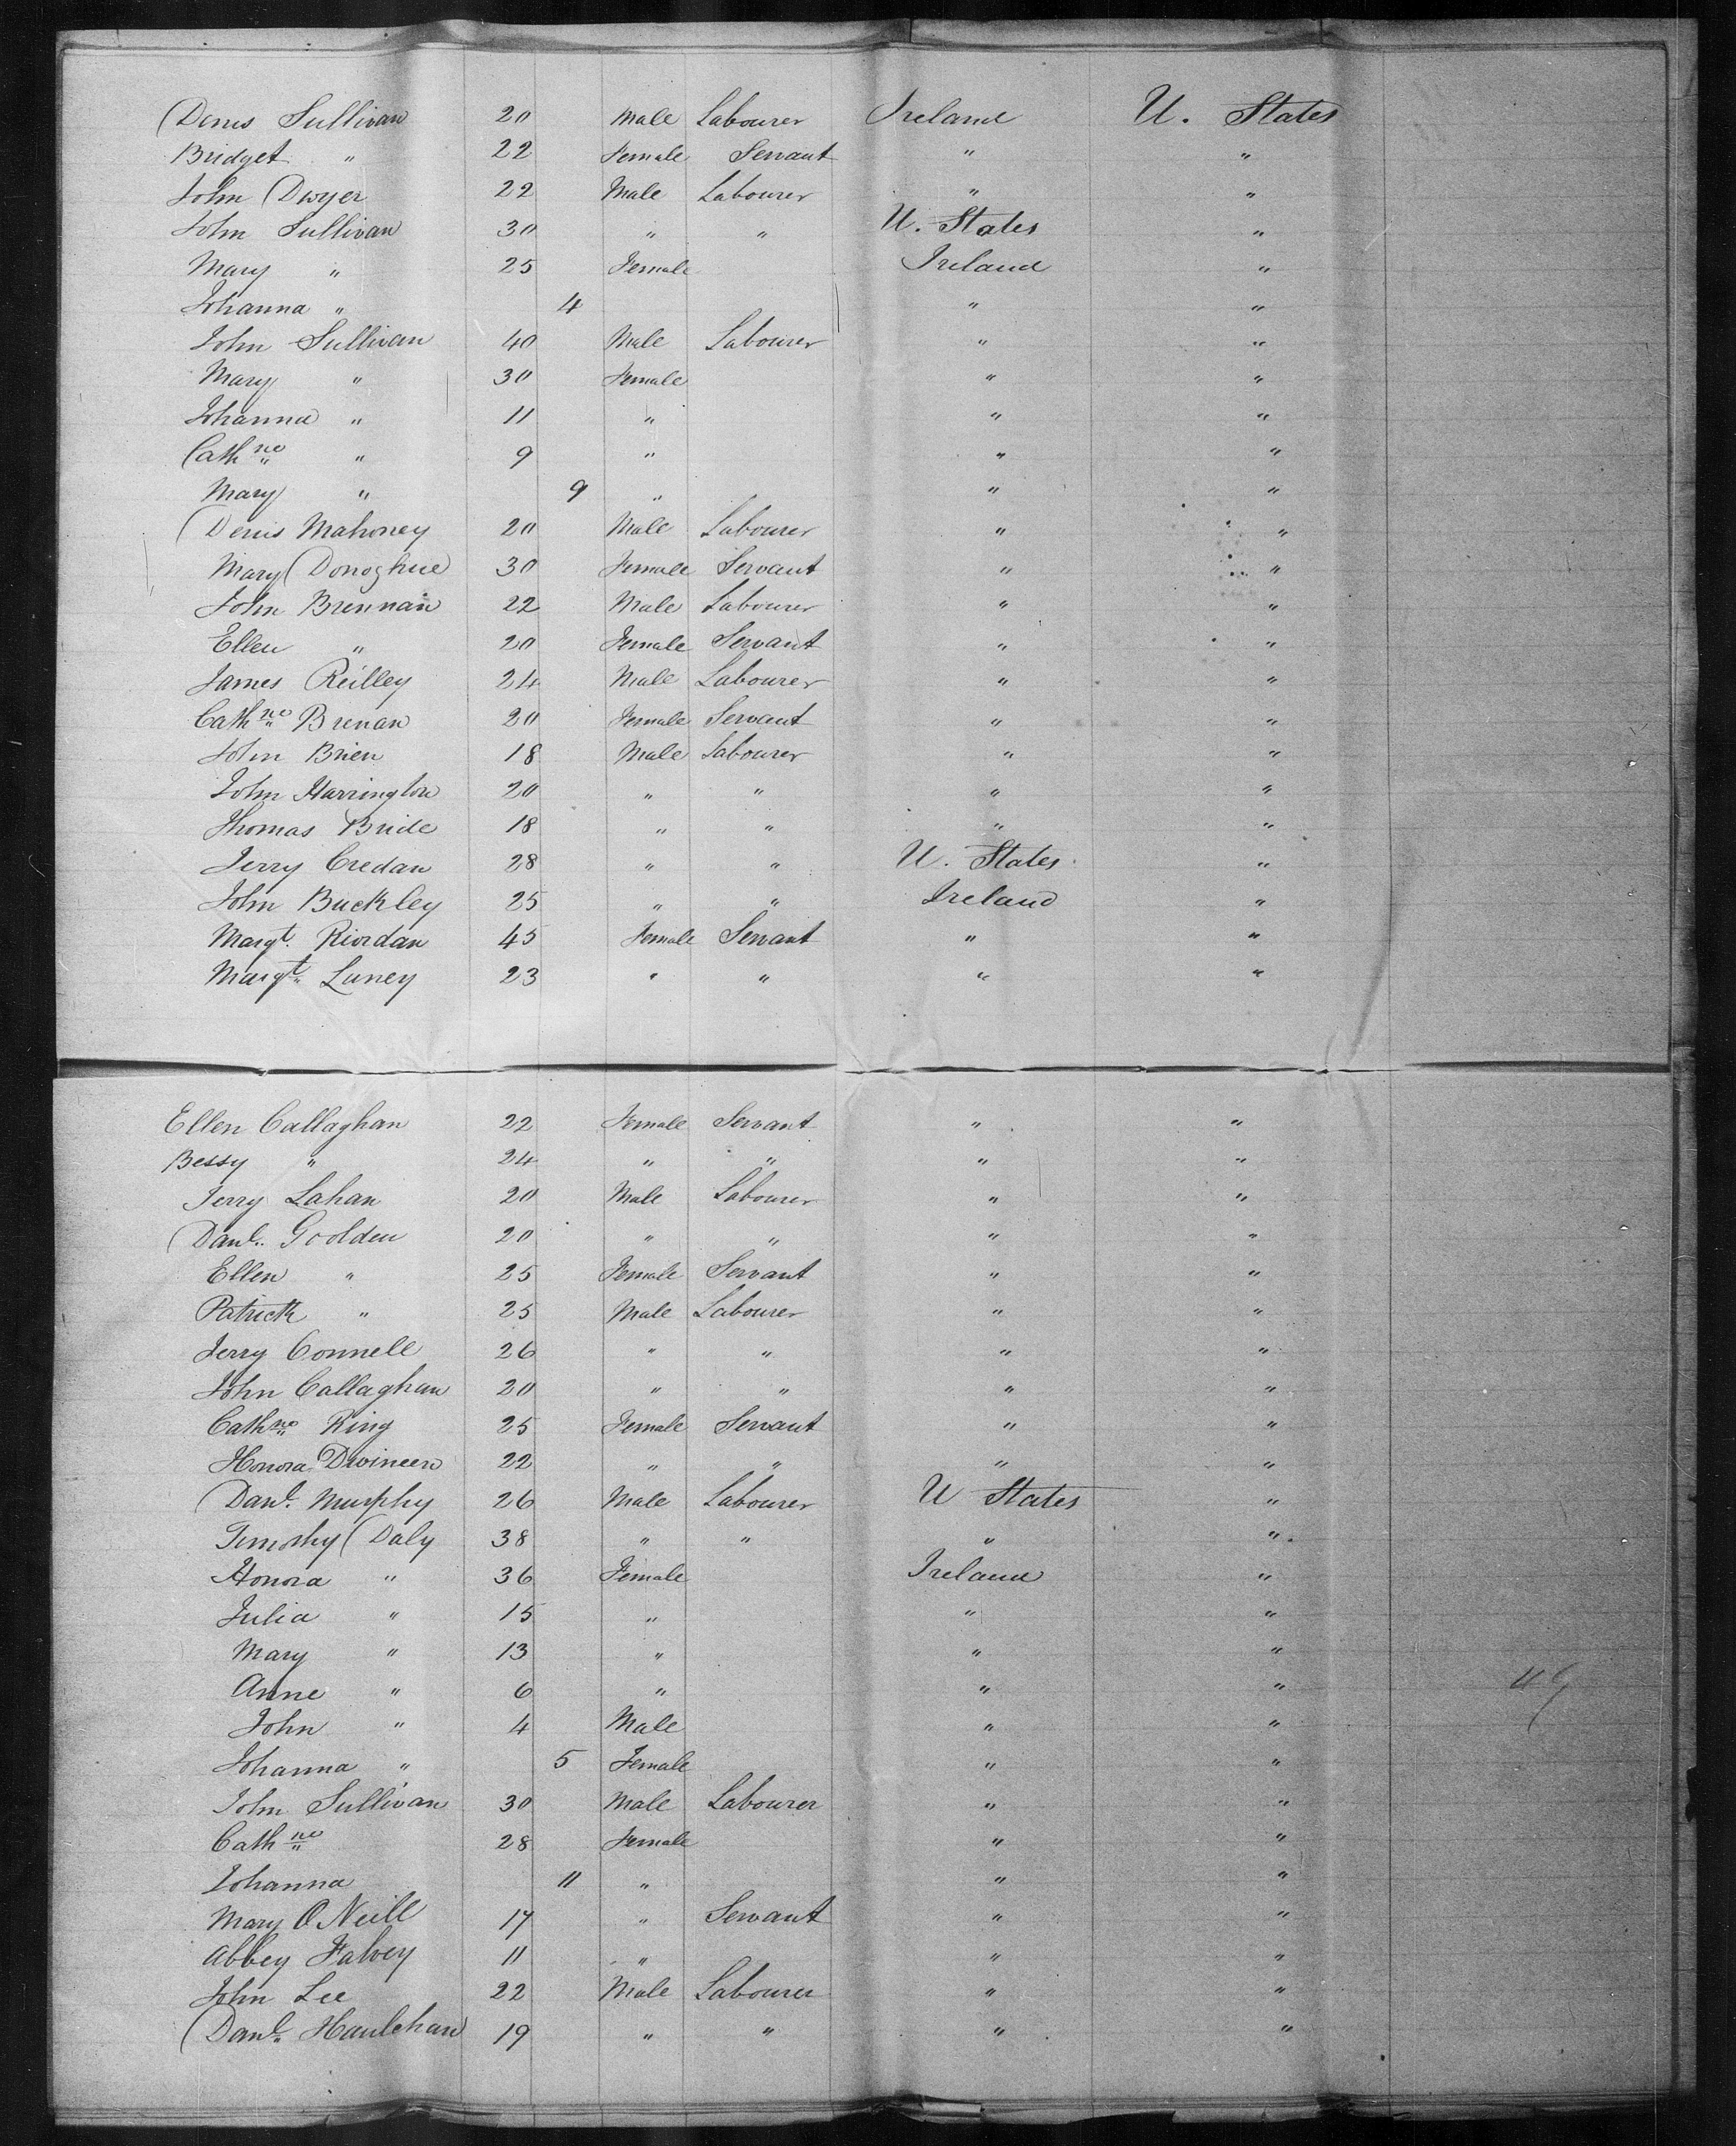 Denis Sullivan 20 Male Labourer Ireland U. States
Bridget " 22 Female Servant " "
John Dwyer 22 Male Labourer " "
John Sullivan 30 " " U. States "
Mary " 25 Female Ireland "
Johanna " 4 " "
John Sullivan 40 Male Labourer " "
Mary " 30 Female " "
Johanna " 11 " " "
Cathne " 9 " " "
Mary " 9 " " "
Denis Mahoney 20 Male Labourer " "
Mary Donoghue 30 Female Servant " "
John Brennan 22 Male Labourer " "
Ellen " 20 Female Servant " "
James Reilley 24 Male Labourer " "
Cathne Brenan 20 Female Servant " "
John Brien 18 Male Labourer " "
John Harrington 20 " " " "
Thomas Bride 18 " " " "
Jerry Credan 28 " " U. States "
John Buckley 25 " " Ireland "
Margt. Riordan 45 Female Servant " "
Margt. Luney 23 " " " "
Ellen Callaghan 22 Female Servant " "
Bessy " 24 " " " "
Jerry Lahan 20 Male Labourer " "
Danl. Goolden 20 " " " "
Ellen " 25 Female Servant " "
Patrick " 25 Male Labourer " "
Jerry Connell 26 " " " "
John Callaghan 20 " " " "
Cathne King 25 Female Servant " "
Honora Dwineen 22 " " " "
Danl. Murphy 26 Male Labourer U States "
Timothy Daly 38 " " " "
Honora " 36 Female Ireland "
Julia " 15 " " "
Mary " 13 " " "
Anne " 6 " " "
John " 4 Male " "
Johanna " 5 Female " "
John Sullivan 30 Male Labourer " "
Cathne 28 Female " "
Johanna 11 " " "
Mary O Neill 17 " Servant " "
Abbey Falvey 11 " " "
John Lee 22 Male Labourer " "
Danl. Houlehan 19 " " " "
49